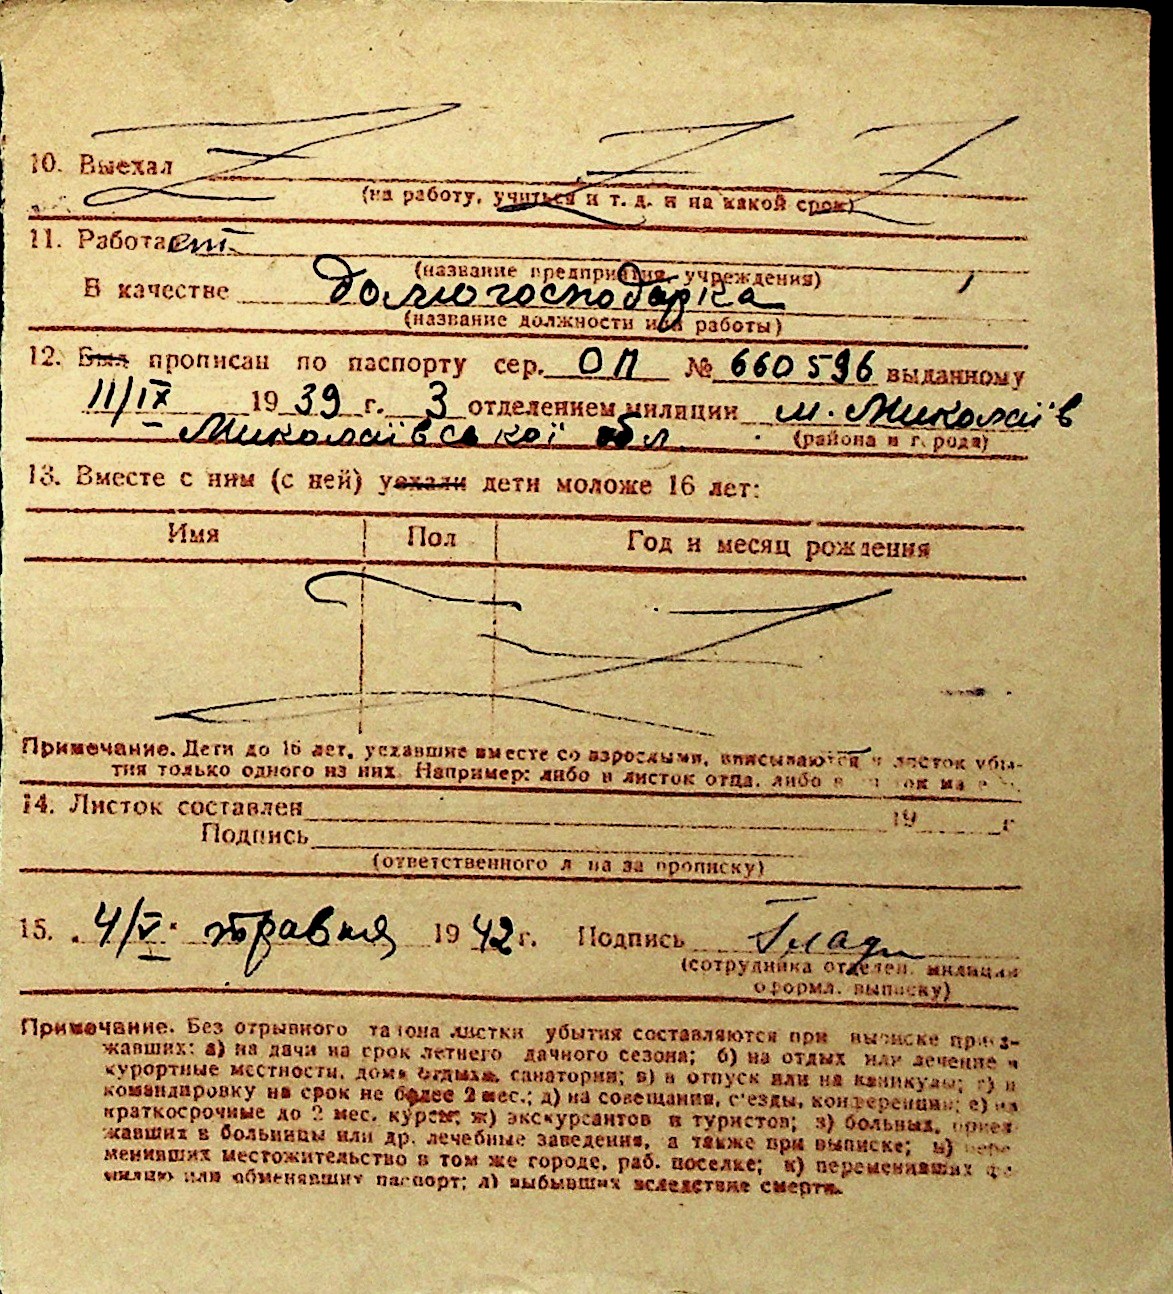 10. Выехал
(на работу, учиться и т. д. и на какой срок)
11. Работает
(название предприятия, учреждения)
В качестве домогосподарка
(название должности или работы)
12. Был прописан по паспорту сер. ОП № 660596 выданному
11/IX 1939 г. 3 отделением милиции м. Миколаїв
Миколаївської обл. (района и города)
13. Вместе с ним (с ней) уехали дети моложе 16 лет:
Имя Пол Год и месяц рождения
Примечание. Дети до 16 лет, уехавшие вместе со взрослыми, вписываются в листок убы-
тия только одного из них. Например: либо в листок отца, либо в
14. Листок составлен 19 г
Подпись
(ответственного лица за прописку)
15. 4/V травня 1942 г. Подпись
(сотрудника отделен. милиции
оформл. выписку)
Примечание. Без отрывного талона листки убытия составляются при выписке приез-
жавших: а) на дачи на срок летнего дачного сезона; б) на отдых или лечение в
курортные местности, дома отдыха, санатории; в) в отпуск или на каникулы; г) в
командировку на срок не более 2 мес.; д) на совещания, с'езды, конференции; е) на
краткосрочные до 2 мес. курсы; ж) экскурсантов и туристов; з) больных, приез-
жавших в больницы или др. лечебные заведения, а также при выписке; и) пере-
менивших местожительство в том же городе, раб. поселке; к) переменивших фа-
милию или обменявших паспорт; л) выбывших вследствие смерти.